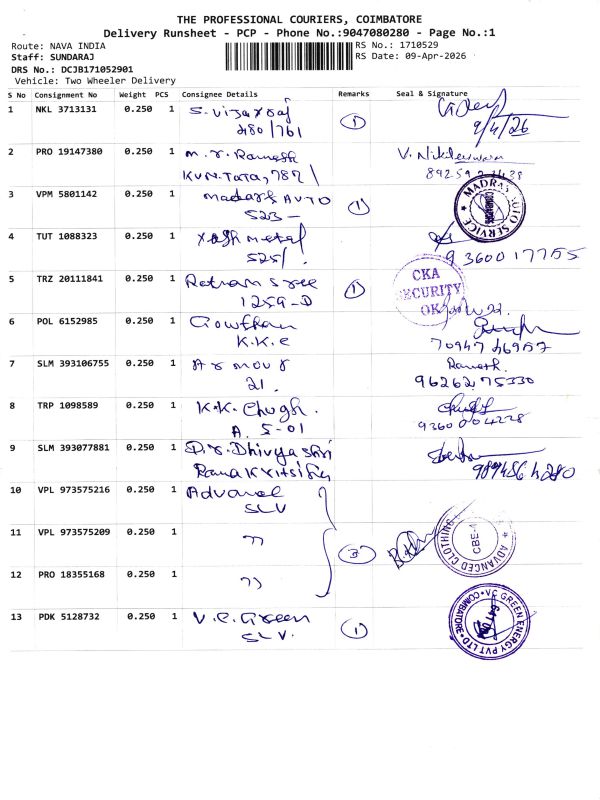 THE PROFESSIONAL COURIERS, COIMBATORE
Delivery Runsheet - PCP - Phone No.:9047080280 - Page No.:1
Route: NAVA INDIA
RS No.: 1710529
Staff: SUNDARAJ
RS Date: 09-Apr-2026
DRS No.: DCJB171052901
Vehicle: Two Wheeler Delivery
S No Consignment No Weight PCS Consignee Details Remarks Seal & Signature
1 NKL 3713131 0.250 1 S. Vijayraj 1
480/761 9/4/26
2 PRO 19147380 0.250 1 M. r. Ramesh
KVN. TATA, 787
3 VPM 5801142 0.250 1 Madars AUTO 1
523 - MADRAS AUTO SERVICE
4 TUT 1088323 0.250 1 metal
525/. 9360017755
5 TRZ 20111841 0.250 1 Ratnam Sree 1 CKA
1259-D SECURITY
OK
6 POL 6152985 0.250 1 Gowtham
K.K.C 70947 46957
7 SLM 393106755 0.250 1 Armour Ramesh.
21. 96262 75330
8 TRP 1098589 0.250 1 K.K. Chugh.
A. 5-01 9360004228
9 SLM 393077881 0.250 1 D.r. Dhivya Shri
10 VPL 973575216 0.250 1 Advanel
SLV
11 VPL 973575209 0.250 1 " 3 ADVANCED CLOTHING CBE-4
12 PRO 18355168 0.250 1 "
13 PDK 5128732 0.250 1 V.C. Green 1 VC GREEN ENERGY PVT LTD COIMBATORE
SLV.